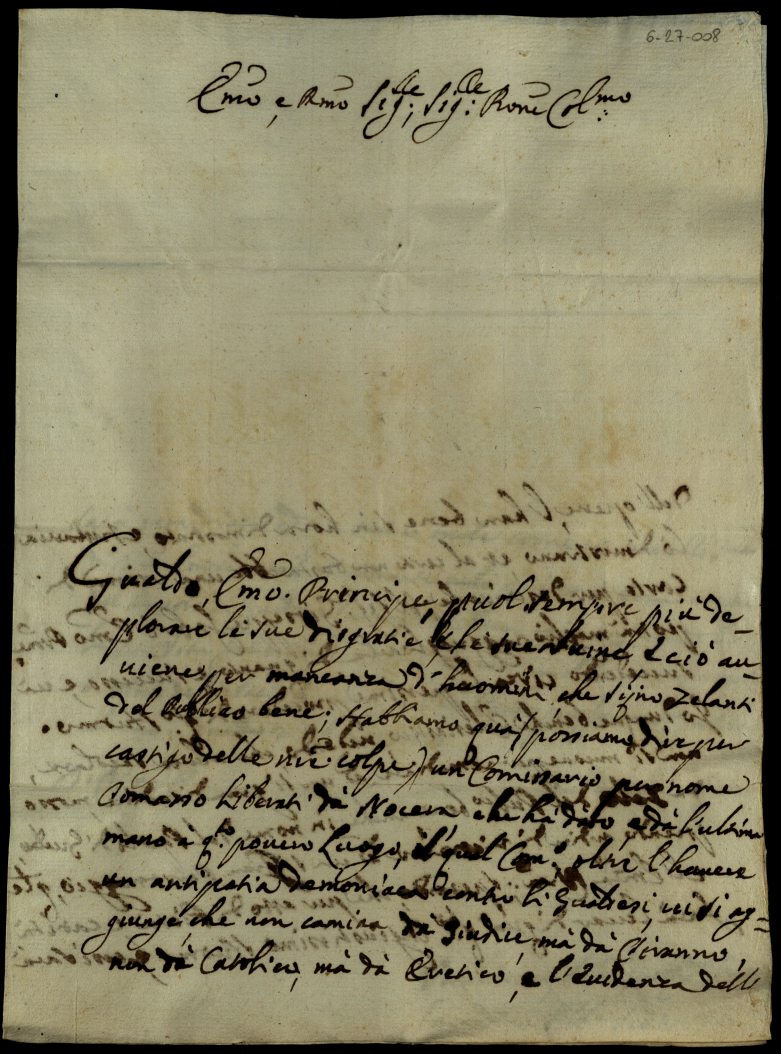 6-27-008
Emo, e Rmo Sig:re, Sig:re Rone Colmo
Gualdo, Emo. Principe, puol sempre più de-
plorare le sue disgratie, che sue ruine, e ciò au-
uiene per mancanza d'huomini che sijno zelanti
del Publico bene; Habbiamo quà (possiamo dire per
castigo delle nre colpe) un Comissario per nome
Tomasso Liberati dà Nocera che hà dato, e dà l'ultima
mano à q.to pouero Luogo, il qual Com.o oltre l'hauere
un antipatia demoniaca contro li Gualdesi, ui si ag=
giunge, che non camina dà Giudice, mà dà Tiranno,
non dà Catolico, mà dà Eretico, e l'Euidenza delle